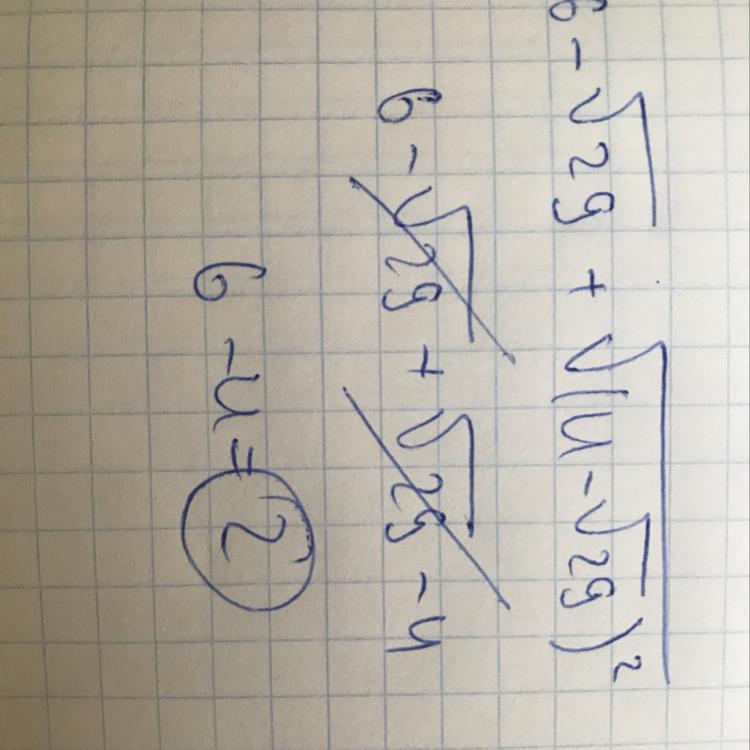 6 - √29 + √(4 - √29)²
6 - √29 + √29 - 4
6 - 4 = 2